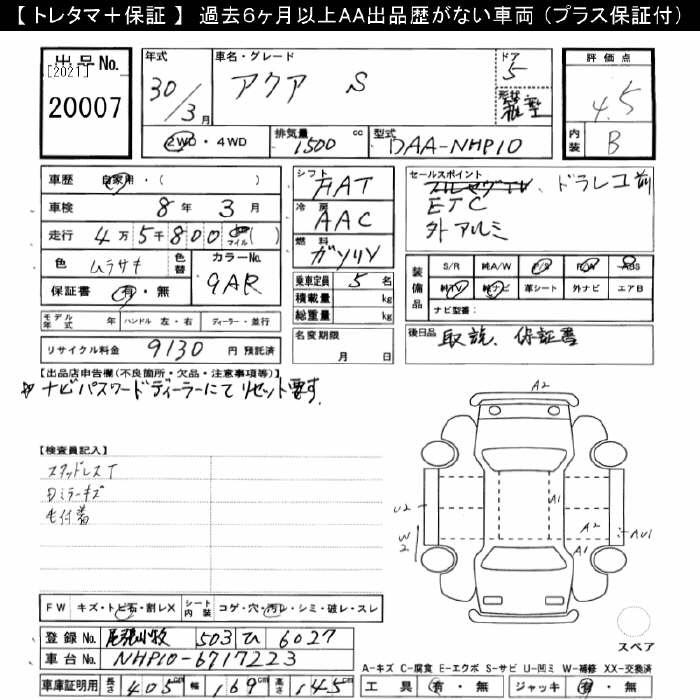 【 トレタマ＋保証 】 過去6ヶ月以上AA出品歴がない車両（プラス保証付）
出品No.
[2021]
20007
年式
30/3月
車名・グレード
アクア S
ドア
5
形状
評価点
4.5
内装
B
2WD・4WD
排気量 1500 cc
型式 DAA-NHP10
車歴 自家用・( )
車検 8年 3月
走行 4万5千800 マイル( )
色 ムラサキ 色替
カラーNo.
9AR
保証書 有・無
モデル年式 年 ハンドル 左・右 ディーラー・並行
リサイクル料金 9130 円 預託済
シフト
FAT
冷房
AAC
燃料
ガソリン
乗車定員 5 名
積載量 kg
総重量 kg
名変期限
月 日
セールスポイント
、ドラレコ前
ETC
外アルミ
装備品
S/R 純A/W P/S P/W ABS
純TV 純ナビ 革シート 外ナビ エアB
ナビ型番:
後日品 取説、保証書
【出品店申告欄(不良箇所・欠品・注意事項等)】
ナビパスワードディーラーにてリセット要す。
【検査員記入】
スタッドレスT
Dミラーキズ
毛付着
A2
A1
U2
W2
A2
A1
AU1
スペア
FW キズ・トビ石・割レX シート内装 コゲ・穴・汚レ・シミ・破レ・スレ
登録No. 尾張小牧 503 ひ 6027
車台No. NHP10-6717223
車庫証明用 長さ 405cm 幅 169cm 高さ 145cm
A-キズ C-腐食 E-エクボ S-サビ U-凹ミ W-補修 XX-交換済
工具 有・無 ジャッキ 有・無